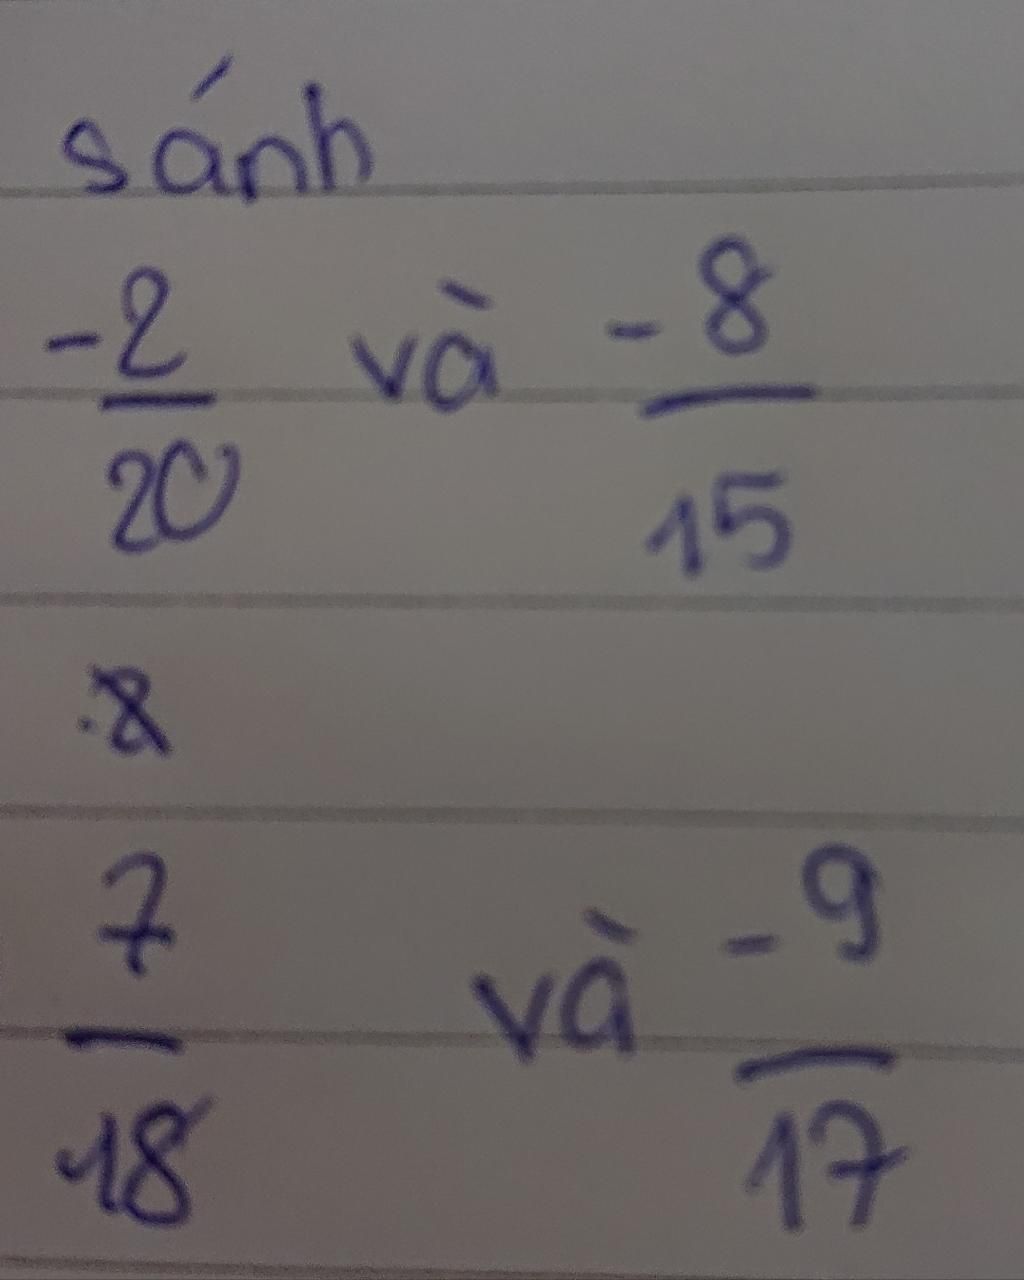 sánh
-2/20 và -8/15
7/18 và -9/17